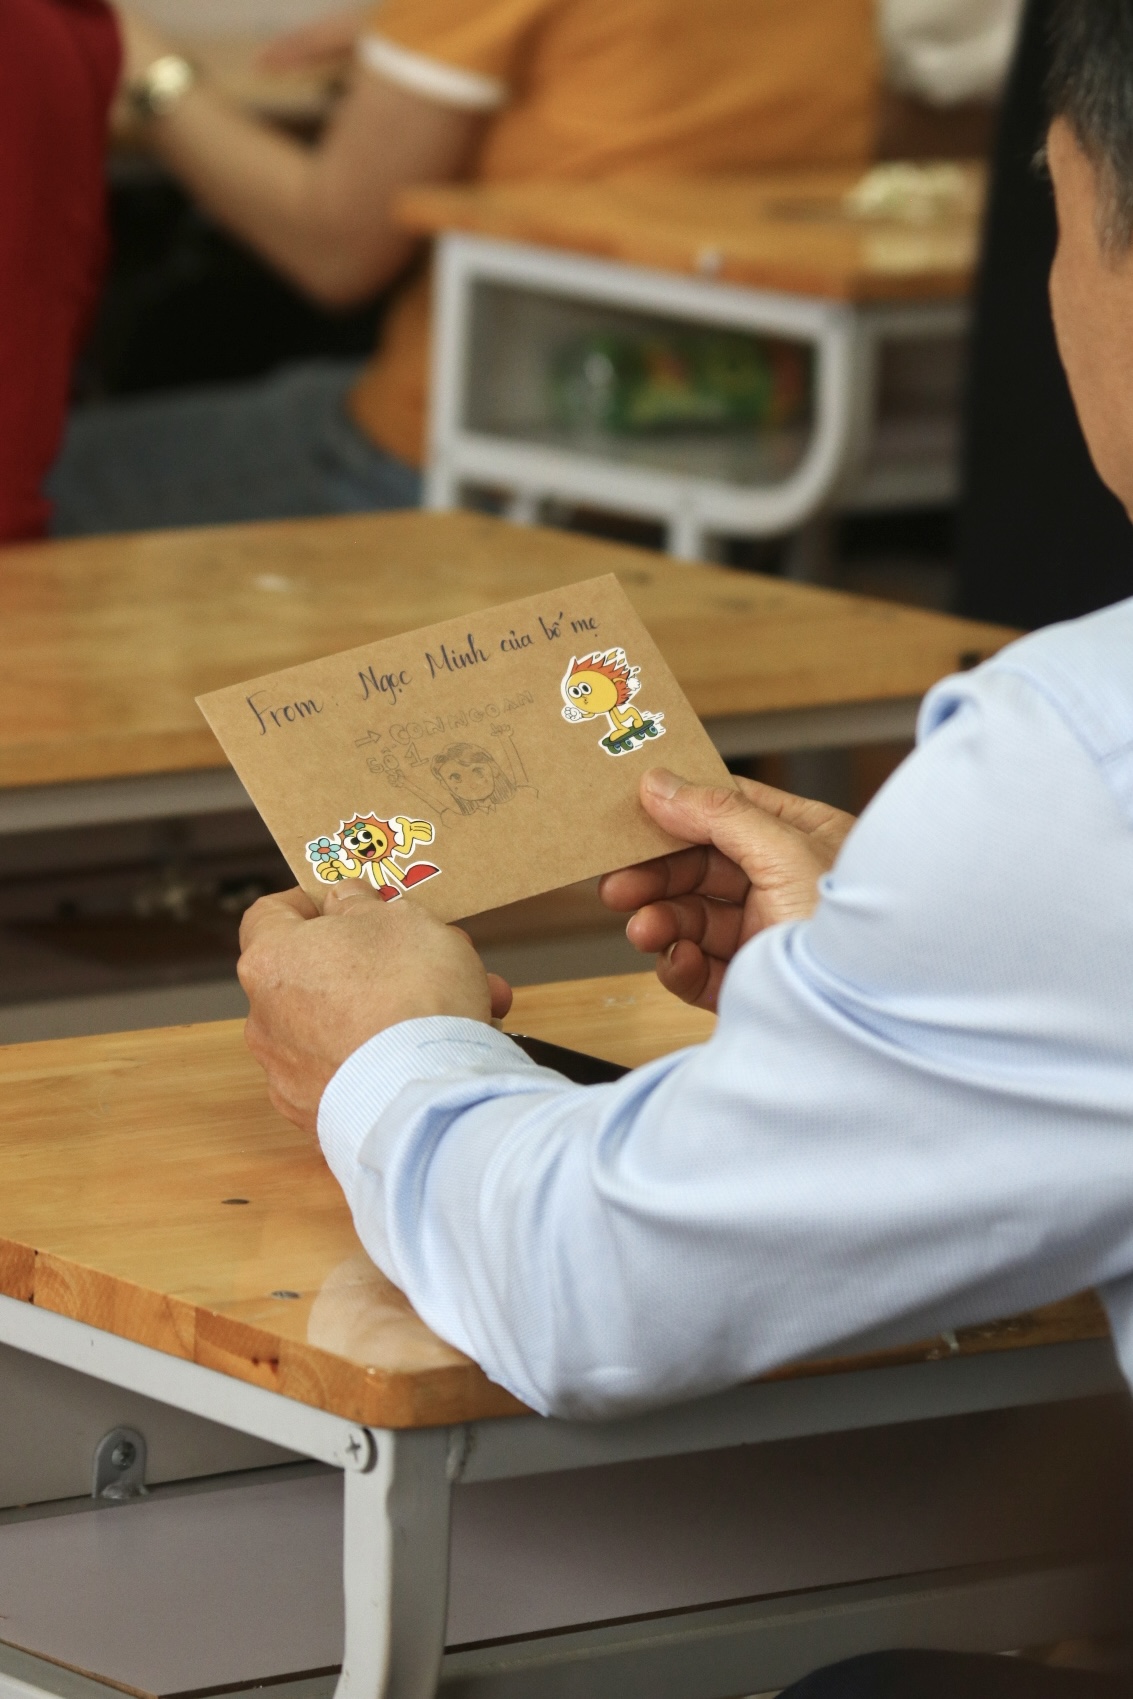 From: Ngọc Minh của bố mẹ
→ CON NGOAN
số 1